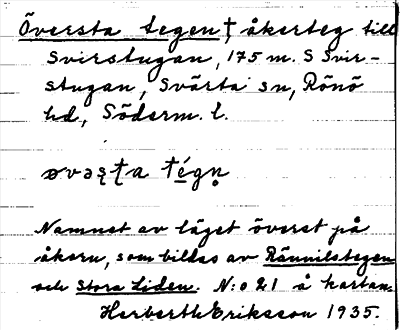 Översta tegen†, åkerteg till
Svirstugan, 175 m. S Svir-
stugan, Svärta sn, Rönö
hd, Söderm. l.
Namnet av läget överst på
åkern, som bildas av Rämnilstegen
och Stora Liden. N:o 21 å kartan.
Herberth Eriksson 1935.